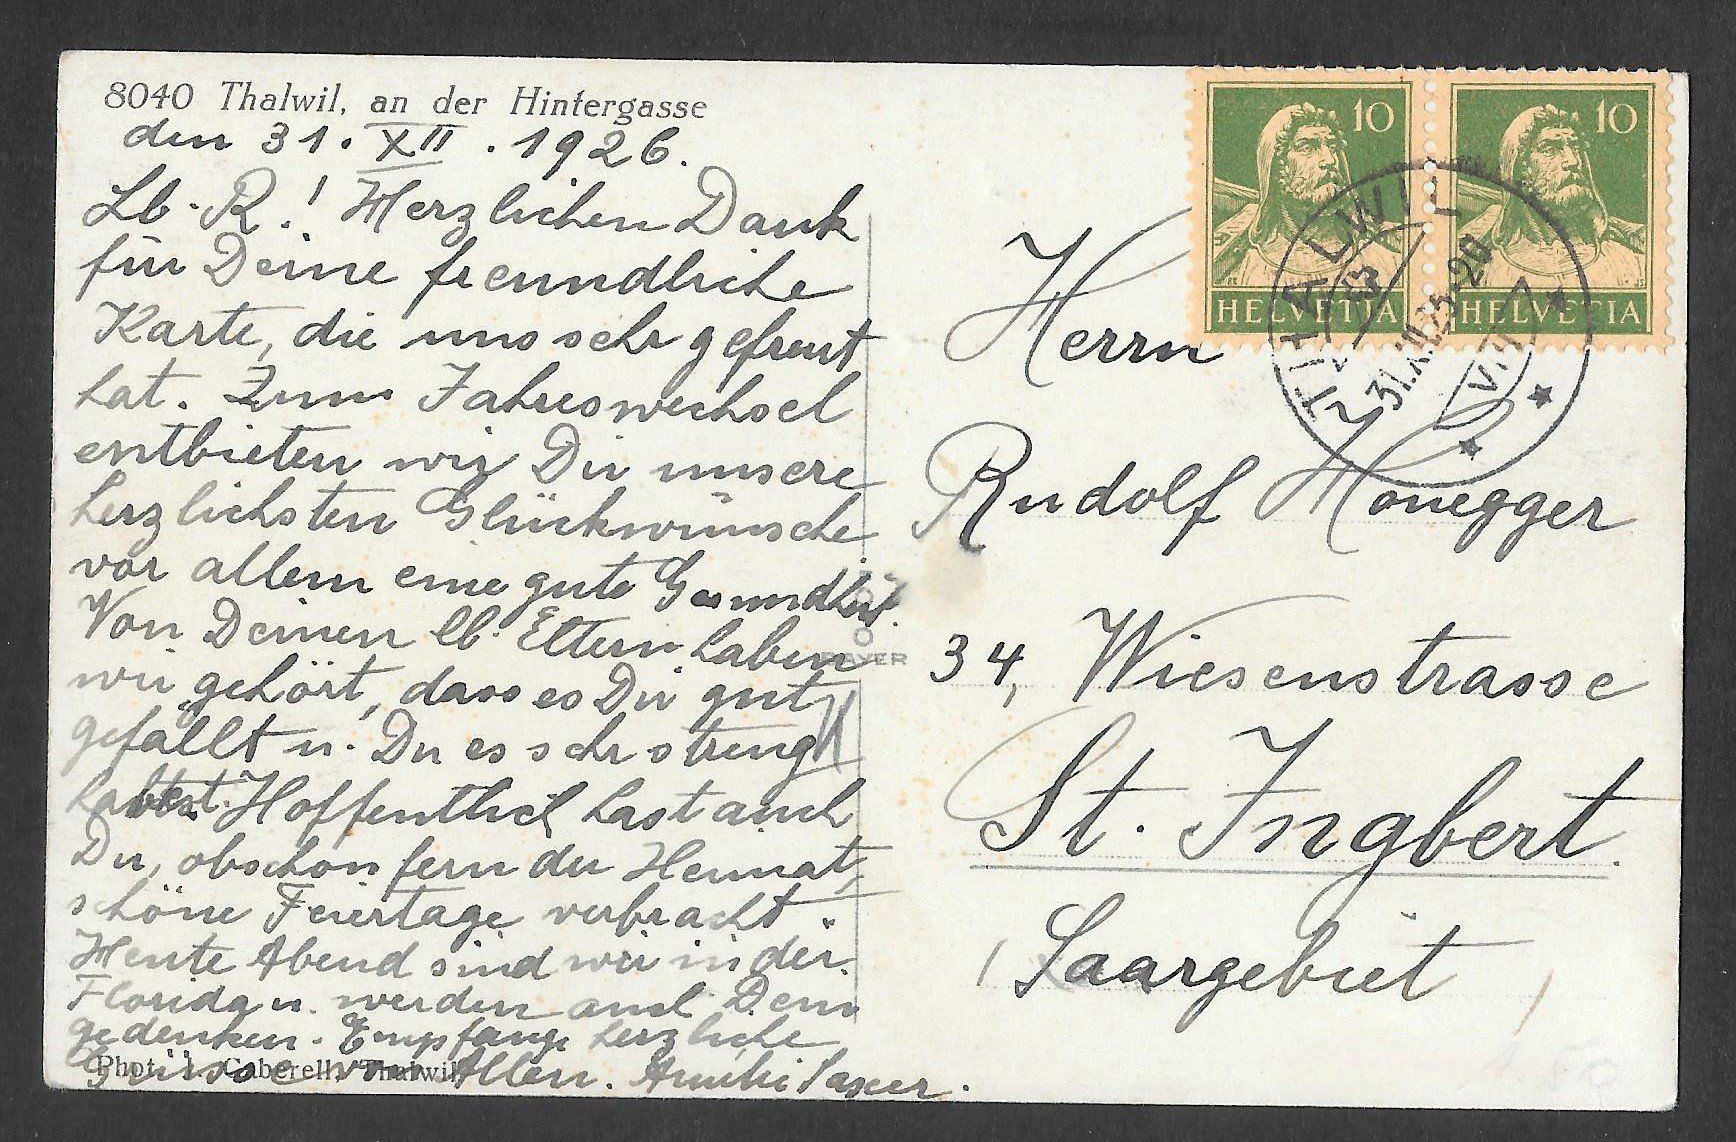 8040 Thalwil, an der Hintergasse
den 31. XII. 1926.
Lb. R.! Herzlichen Dank
für Deine freundliche
Karte, die uns sehr gefreut
hat. Zum Jahreswechsel
entbieten wir Dir unsere
herzlichsten Glückwünsche
vor allem eine gute Gesundheit.
Von Deinen lb. Eltern haben
wir gehört, dass es Dir gut
gefällt u. Du es sehr streng
Hoffentlich hast auch
Du, obschon fern der Heimat,
schöne Feiertage verbracht.
Heute Abend sind wir in der
Florida u. werden auch Dein
gedenken. Empfange herzliche
Grüsse von Allen.
Phot. J. Gaberell, Thalwil
BAYER
10
HELVETIA
10
HELVETIA
THALWIL
31.XII.
-20
Herrn
Rudolf Honegger
34, Wiesenstrasse
St. Ingbert.
Saargebiet